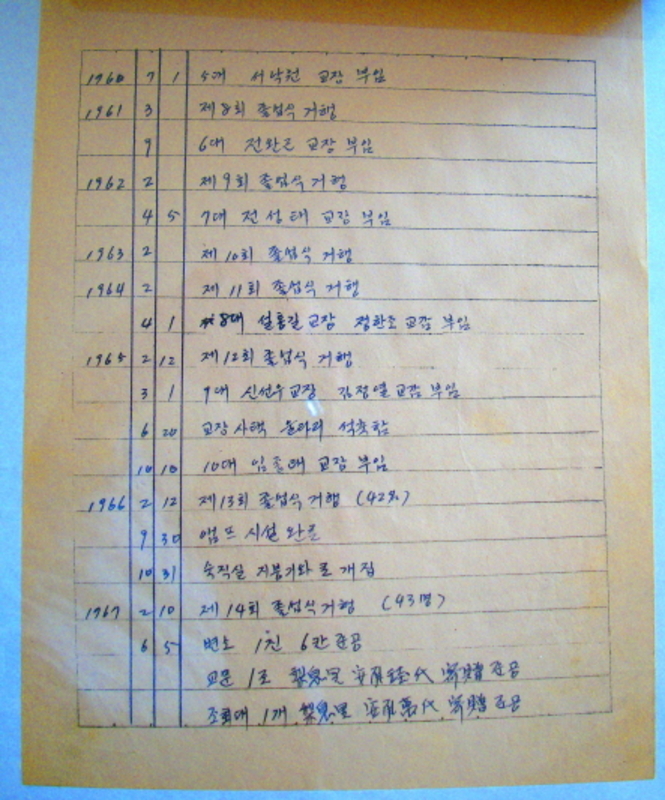 1960 7 1 5대 서낙원 교장 부임
1961 3 제8회 졸업식 거행
9 6대 전완근 교장 부임
1962 2 제9회 졸업식 거행
4 5 7대 전성태 교장 부임
1963 2 제10회 졸업식 거행
1964 2 제11회 졸업식 거행
4 1 8대 설동길 교장 정한조 교감 부임
1965 2 12 제12회 졸업식 거행
3 1 9대 신선우 교장 김정열 교감 부임
6 20 교장사택 울타리 석축함
10 10 10대 임종태 교장 부임
1966 2 12 제13회 졸업식 거행 (42名)
9 30 앰프 시설 완료
10 31 숙직실 지붕 기와로 개집
1967 2 10 제14회 졸업식 거행 (43명)
6 5 변소 1친 6칸 준공
교문 1조 寄贈 준공
조회대 1개 寄贈 준공